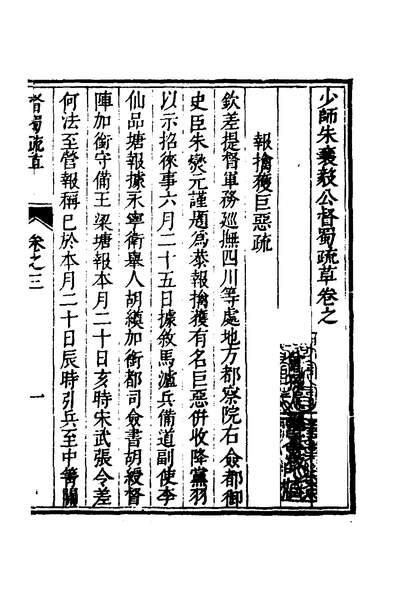 少師朱襄毅公督蜀疏草卷之
報擒獲巨惡疏
欽差提督軍務巡撫四川等處地方都察院右僉都御
史臣朱燮元謹題為恭報擒獲有名巨惡併收降黨羽
以示招徠事六月二十五日據敘馬瀘兵備道副使李
仙品塘報據永寧衛舉人胡縝加銜都司僉書胡綬督
陣加銜守備王梁塘報本月二十日亥時宋武張令差
何法至營報稱已於本月二十日辰時引兵至中箐關
督蜀疏草
卷之三
一